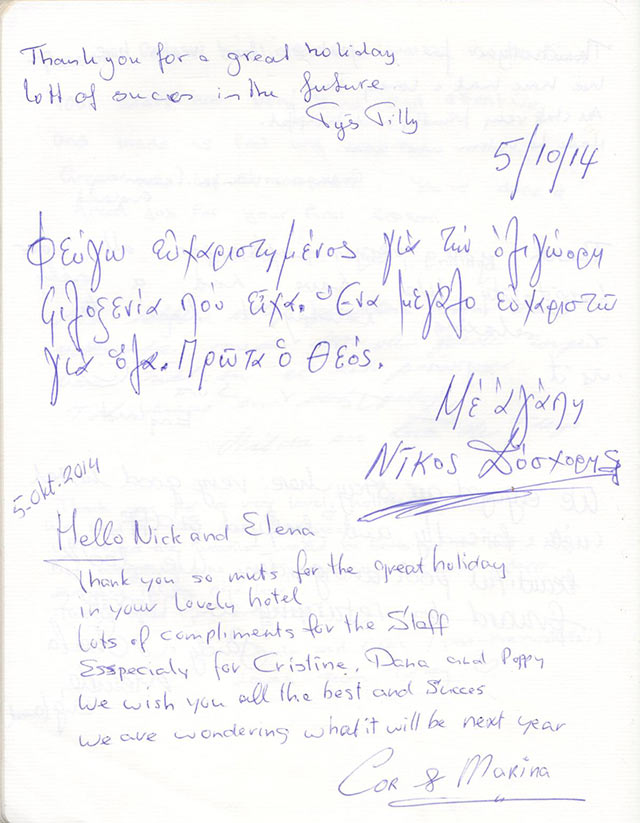 Thank you for a great holiday
lott of succes in the future
Tijs Tilly
5/10/14
Φεύγω εὐχαριστημένος γιὰ τὴν ὀλιγόωρη
φιλοξενία ποὺ εἶχα. Ἕνα μεγάλο εὐχαριστῶ
γιὰ ὅλα. Πρῶτα ὁ Θεός.
Μὲ ἀγάπη
Νῖκος
5-Okt.2014
Hello Nick and Elena
Thank you so muts for the great holiday
in your lovely hotel
Lots of compliments for the Staff
Esspecialy for Cristine, Dana and Poppy
We wish you all the best and Succes
We are wondering what it will be next year
Cor & Marina